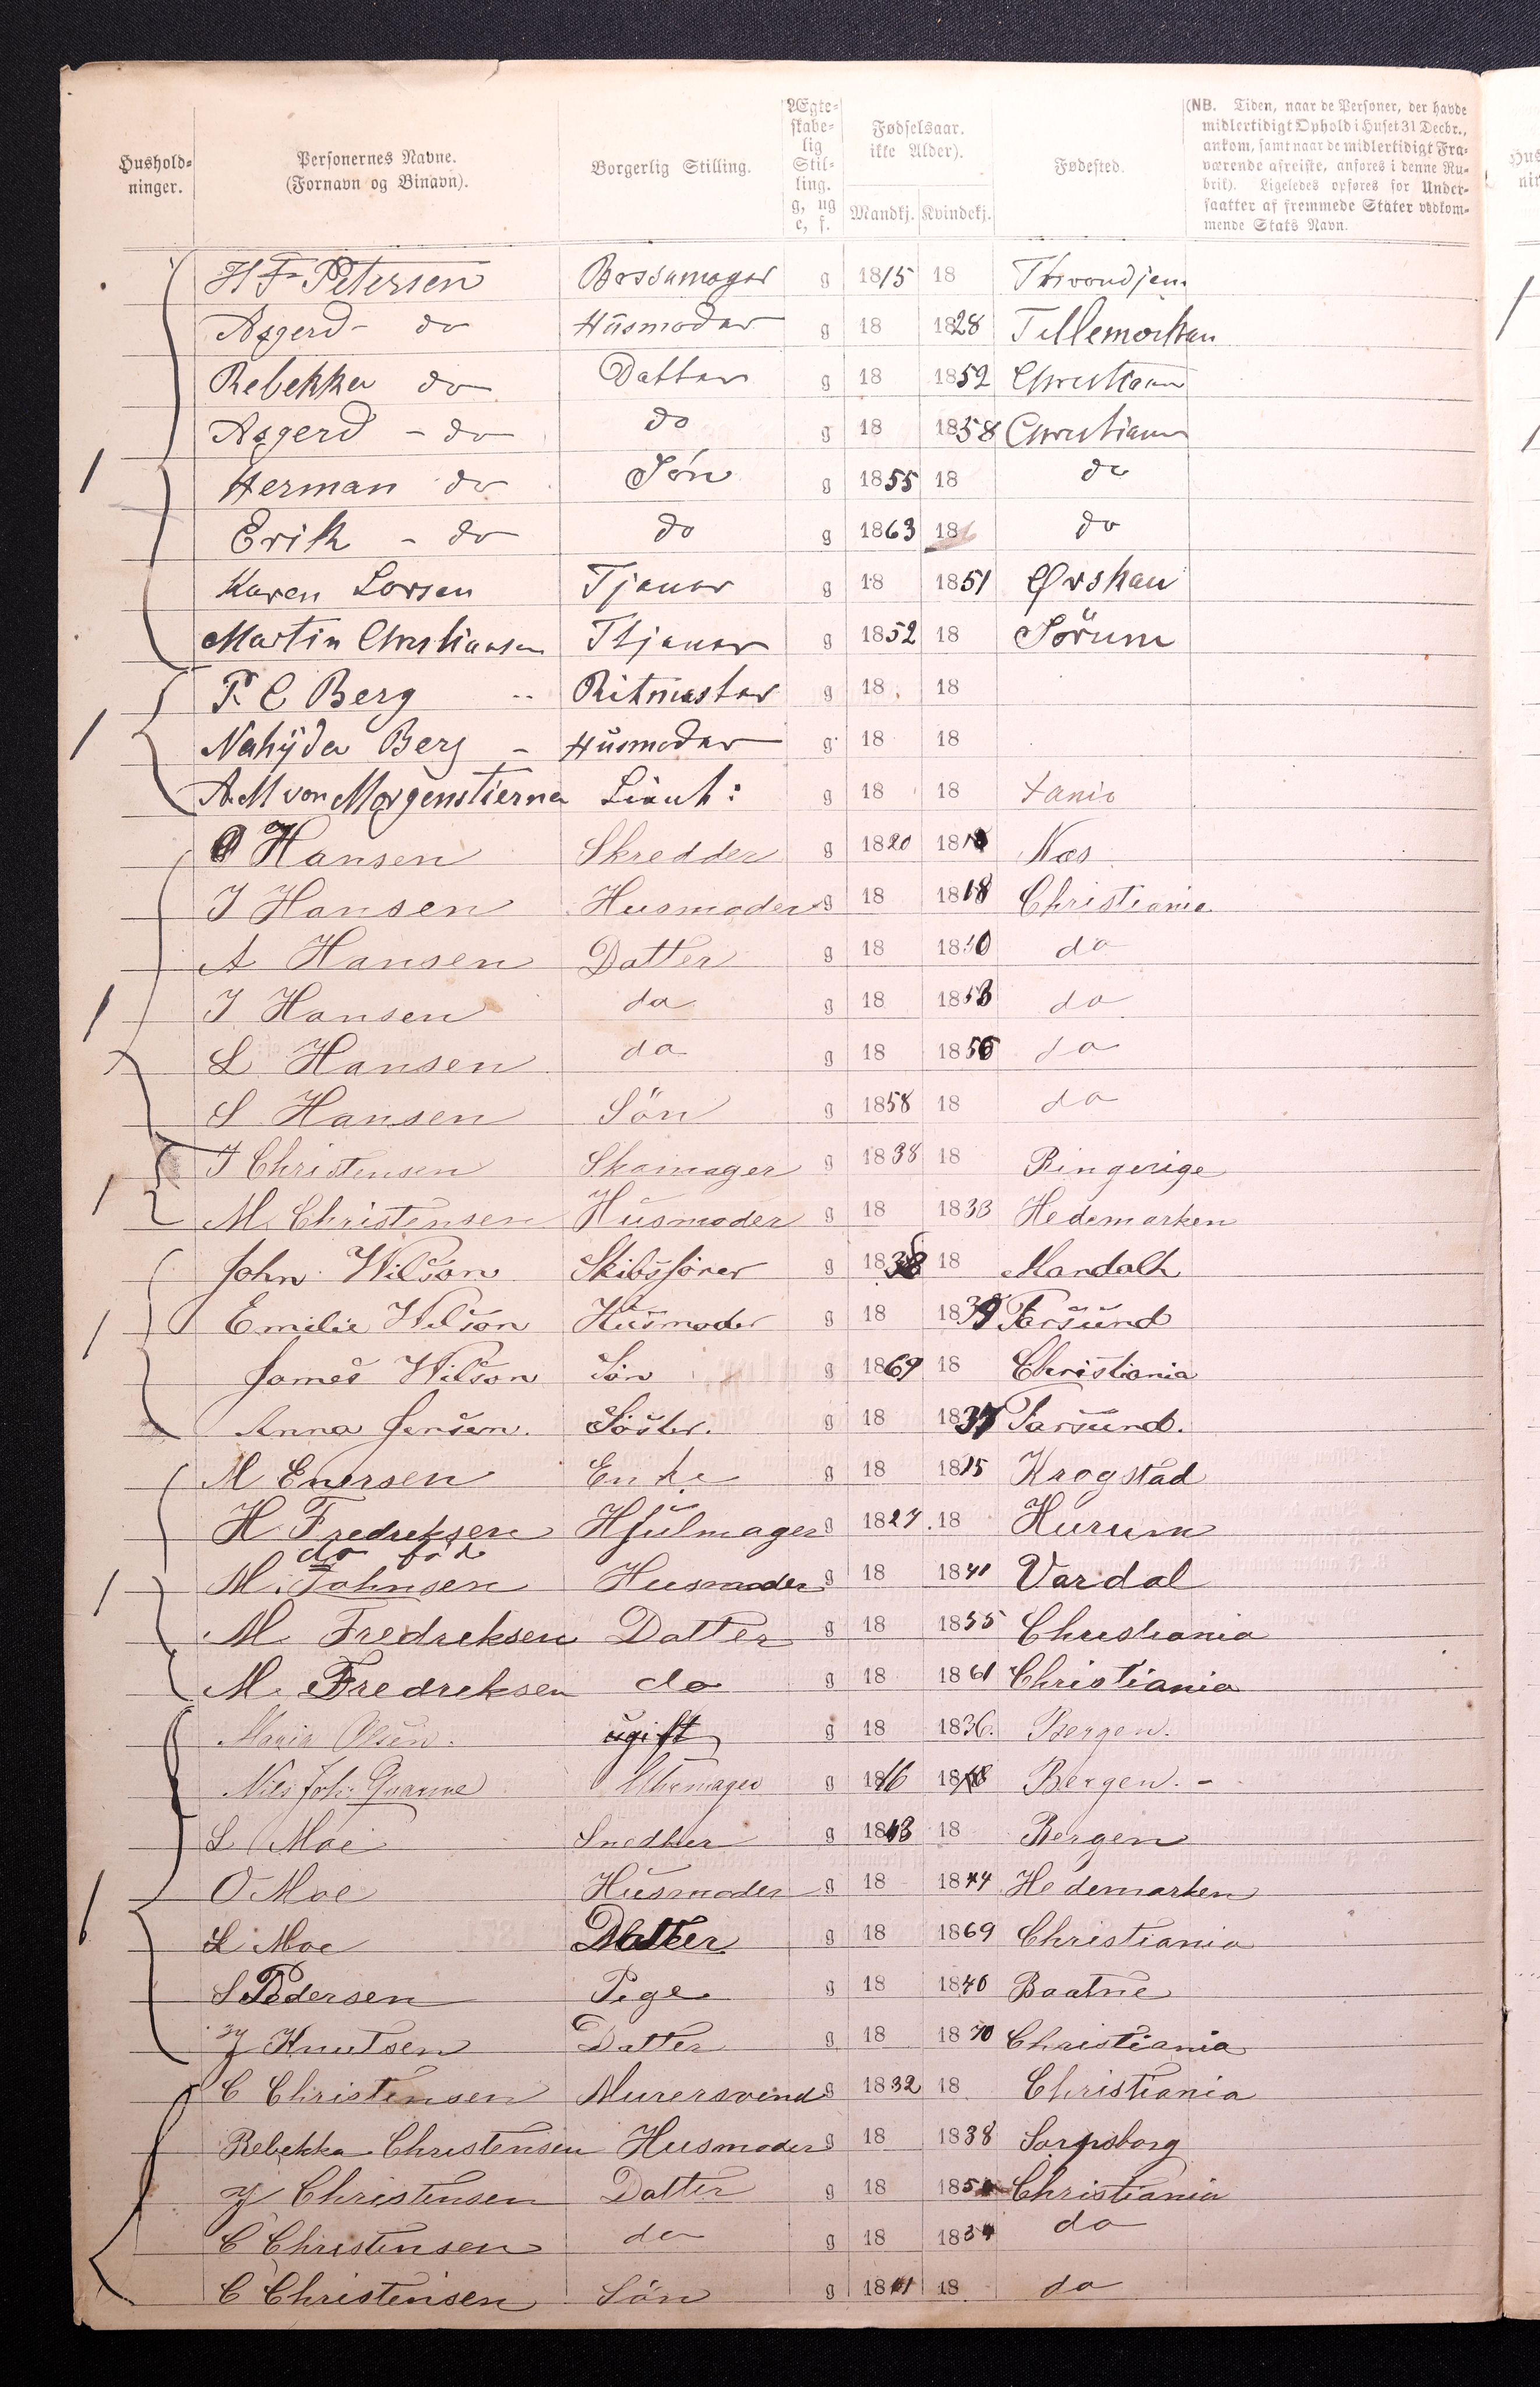 Hushold-
ninger.
Personernes Navne.
(Fornavn og Binavn).
Borgerlig Stilling.
Ægte-
skabe-
lig
Stil-
ling.
g, ug
e, f.
Fødselsaar.
ikke Alder).
Mandkj. Kvindekj.
Fødested.
(NB. Tiden, naar de Personer, der havde
midlertidigt Ophold i Huset 31 Decbr.,
ankom, samt naar de midlertidigt Fra-
værende afreiste, anføres i denne Ru-
brik). Ligeledes opføres for Under-
saatter af fremmede Stater vedkom-
mende Stats Navn.
H F Petersen Bøssemager g 1815 18 Throndjem
Asgerd - do Husmoder g 18 1828 Tellemorken
Rebekka do Datter g 18 1852 Christiania
Asgerd - do do g 18 1858 Christiania
1 Herman do Sön g 1855 18 do
Erik - do do g 1863 18 do
Karen Larsen Tjener g 18 1851 Ørskau
Martin Christiansen Tjener g 1852 18 Sörum
F. C Berg Ritmester g 18 18
1 Nahÿda Berg - Husmoder g 18 18
A. M von Morgenstierna Lieut: g 18 18
Hansen Skredder g 1820 18 Næs
J Hansen Husmoder g 18 1818 Christiania
A Hansen Datter g 18 1850 do
1 J Hansen do g 18 1853 do
L Hansen do g 18 1856 do
S Hansen Sön g 1858 18 do
J Christensen Skomager g 1838 18 Ringerige
1 M. Christensen Husmoder g 18 1833 Hedemarken
John Wilson Skibsförer g 1838 18 Mandall
1 Emilie Wilson Husmoder g 18 1839 Farsund
James Wilson Sön g 1869 18 Christiania
Anna Jensen. Söster. g 18 1837 Farsund.
M Enersen Enke g 18 1815 Krogstad
H Fredriksen Hjulmager g 1827 18 Hurum
do föd
1 M. Johnsen Husmoder g 18 1841 Vardal
M. Fredriksen Datter g 18 1855 Christiania
M. Fredriksen do g 18 1861 Christiania
Maria Olsen. ugift g 18 1836. Bergen.
Nils Joh: Urmager g 1816 18 Bergen. -
L Moe Snedker g 1843 18 Bergen
1 O Moe Husmoder g 18 1844 Hedemarken
L Moe Datter g 18 1869 Christiania
S Pedersen Pige g 18 1840 Baatne
J Knutsen Datter g 18 1870 Christiania
C Christensen Murersvend g 1832 18 Christiania
Rebekka Christensen Husmoder g 18 1838 Sarpsborg
J Christensen Datter g 18 185 Christiania
C Christensen do g 18 18 do
C Christensen Sön g 18 18 do